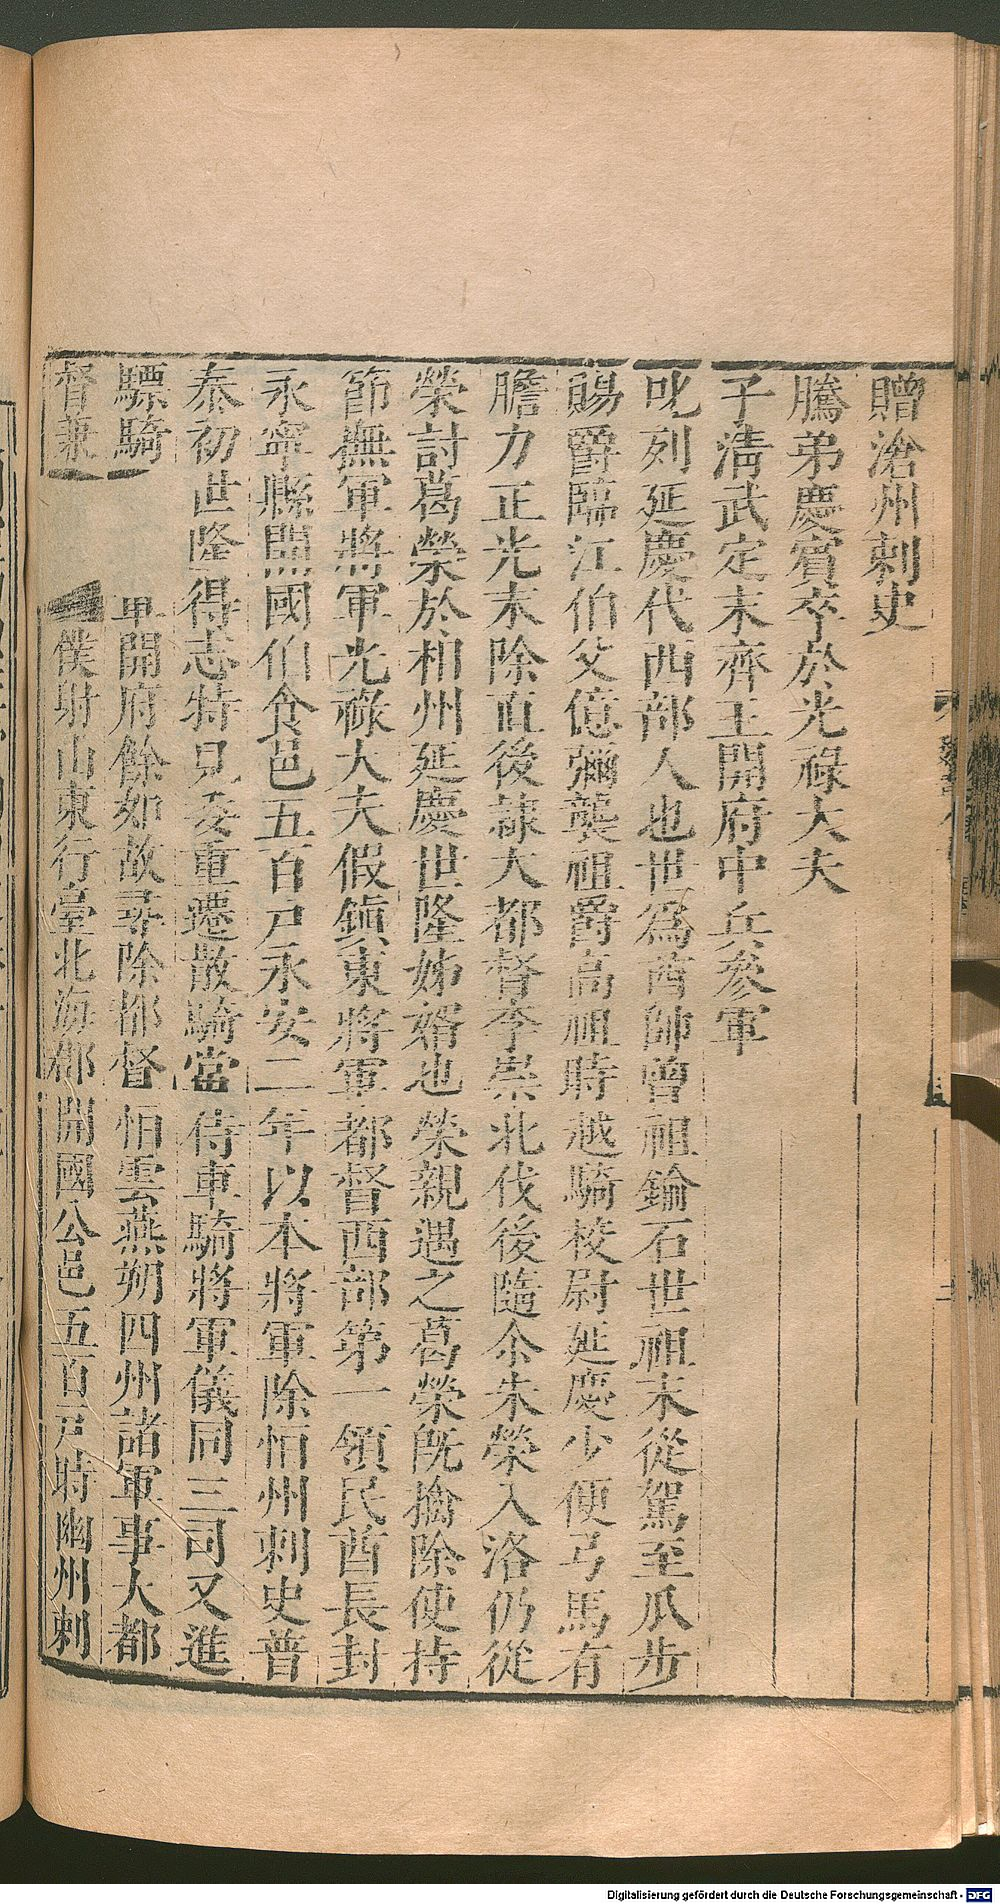 贈滄州刺史
騰弟慶賓卒於光祿大夫
子清武定末齊王開府中兵參軍
叱列延慶代西部人也世爲酋帥曾祖鍮石世祖末從駕至瓜步
賜爵臨江伯父億彌襲祖爵高祖時越騎校尉延慶少便弓馬有
膽力正光末除直後隷大都督李崇北伐後隨尒朱榮入洛仍從
榮討葛榮於相州延慶世隆姊婿也榮親遇之葛榮旣擒除使持
節撫軍將軍光祿大夫假鎭東將軍都督西部第一領民酋長封
永寧縣開國伯食邑五百戶永安二年以本將軍除恒州刺史普
泰初世隆得志特見委重遷散騎常侍車騎將軍儀同三司又進
驃騎 開府餘如故尋除都督恒雲燕朔四州諸軍事大都
督兼 僕射山東行臺北海郡開國公邑五百戶時幽州刺
Digitalisierung gefördert durch die Deutsche Forschungsgemeinschaft - DFG